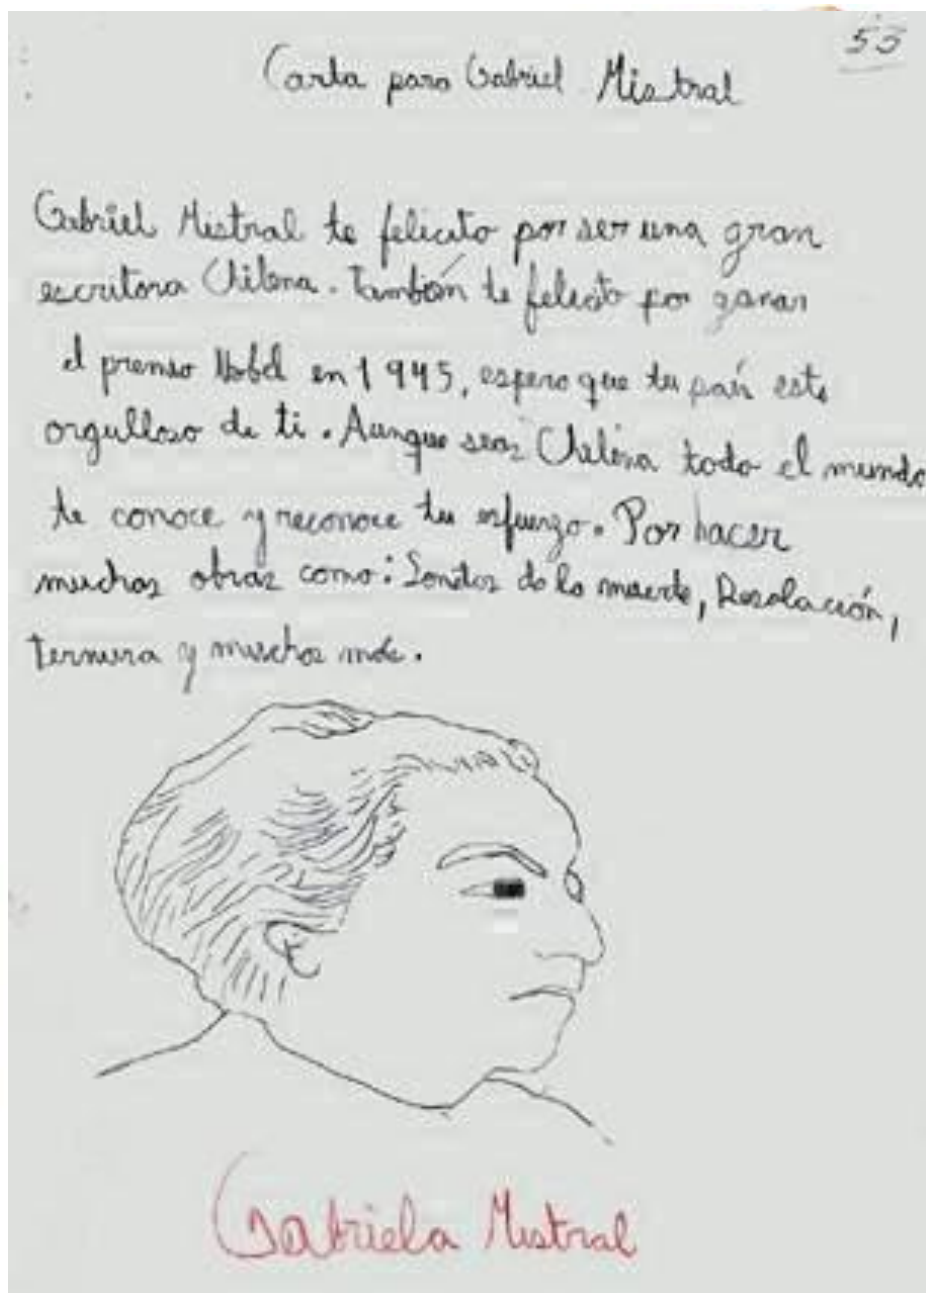 53
Carta para Gabriel Mistral
Gabriel Mistral te felicito por ser una gran
escritora Chilena. También te felicito por ganar
el premio Nobel en 1945, espero que tu país este
orgulloso de ti. Aunque seas Chilena todo el mundo
te conoce y reconoce tu esfuerzo. Por hacer
muchas obras como: Sonetos de la muerte, Desolación,
ternura y muchas más.
Gabriela Mistral